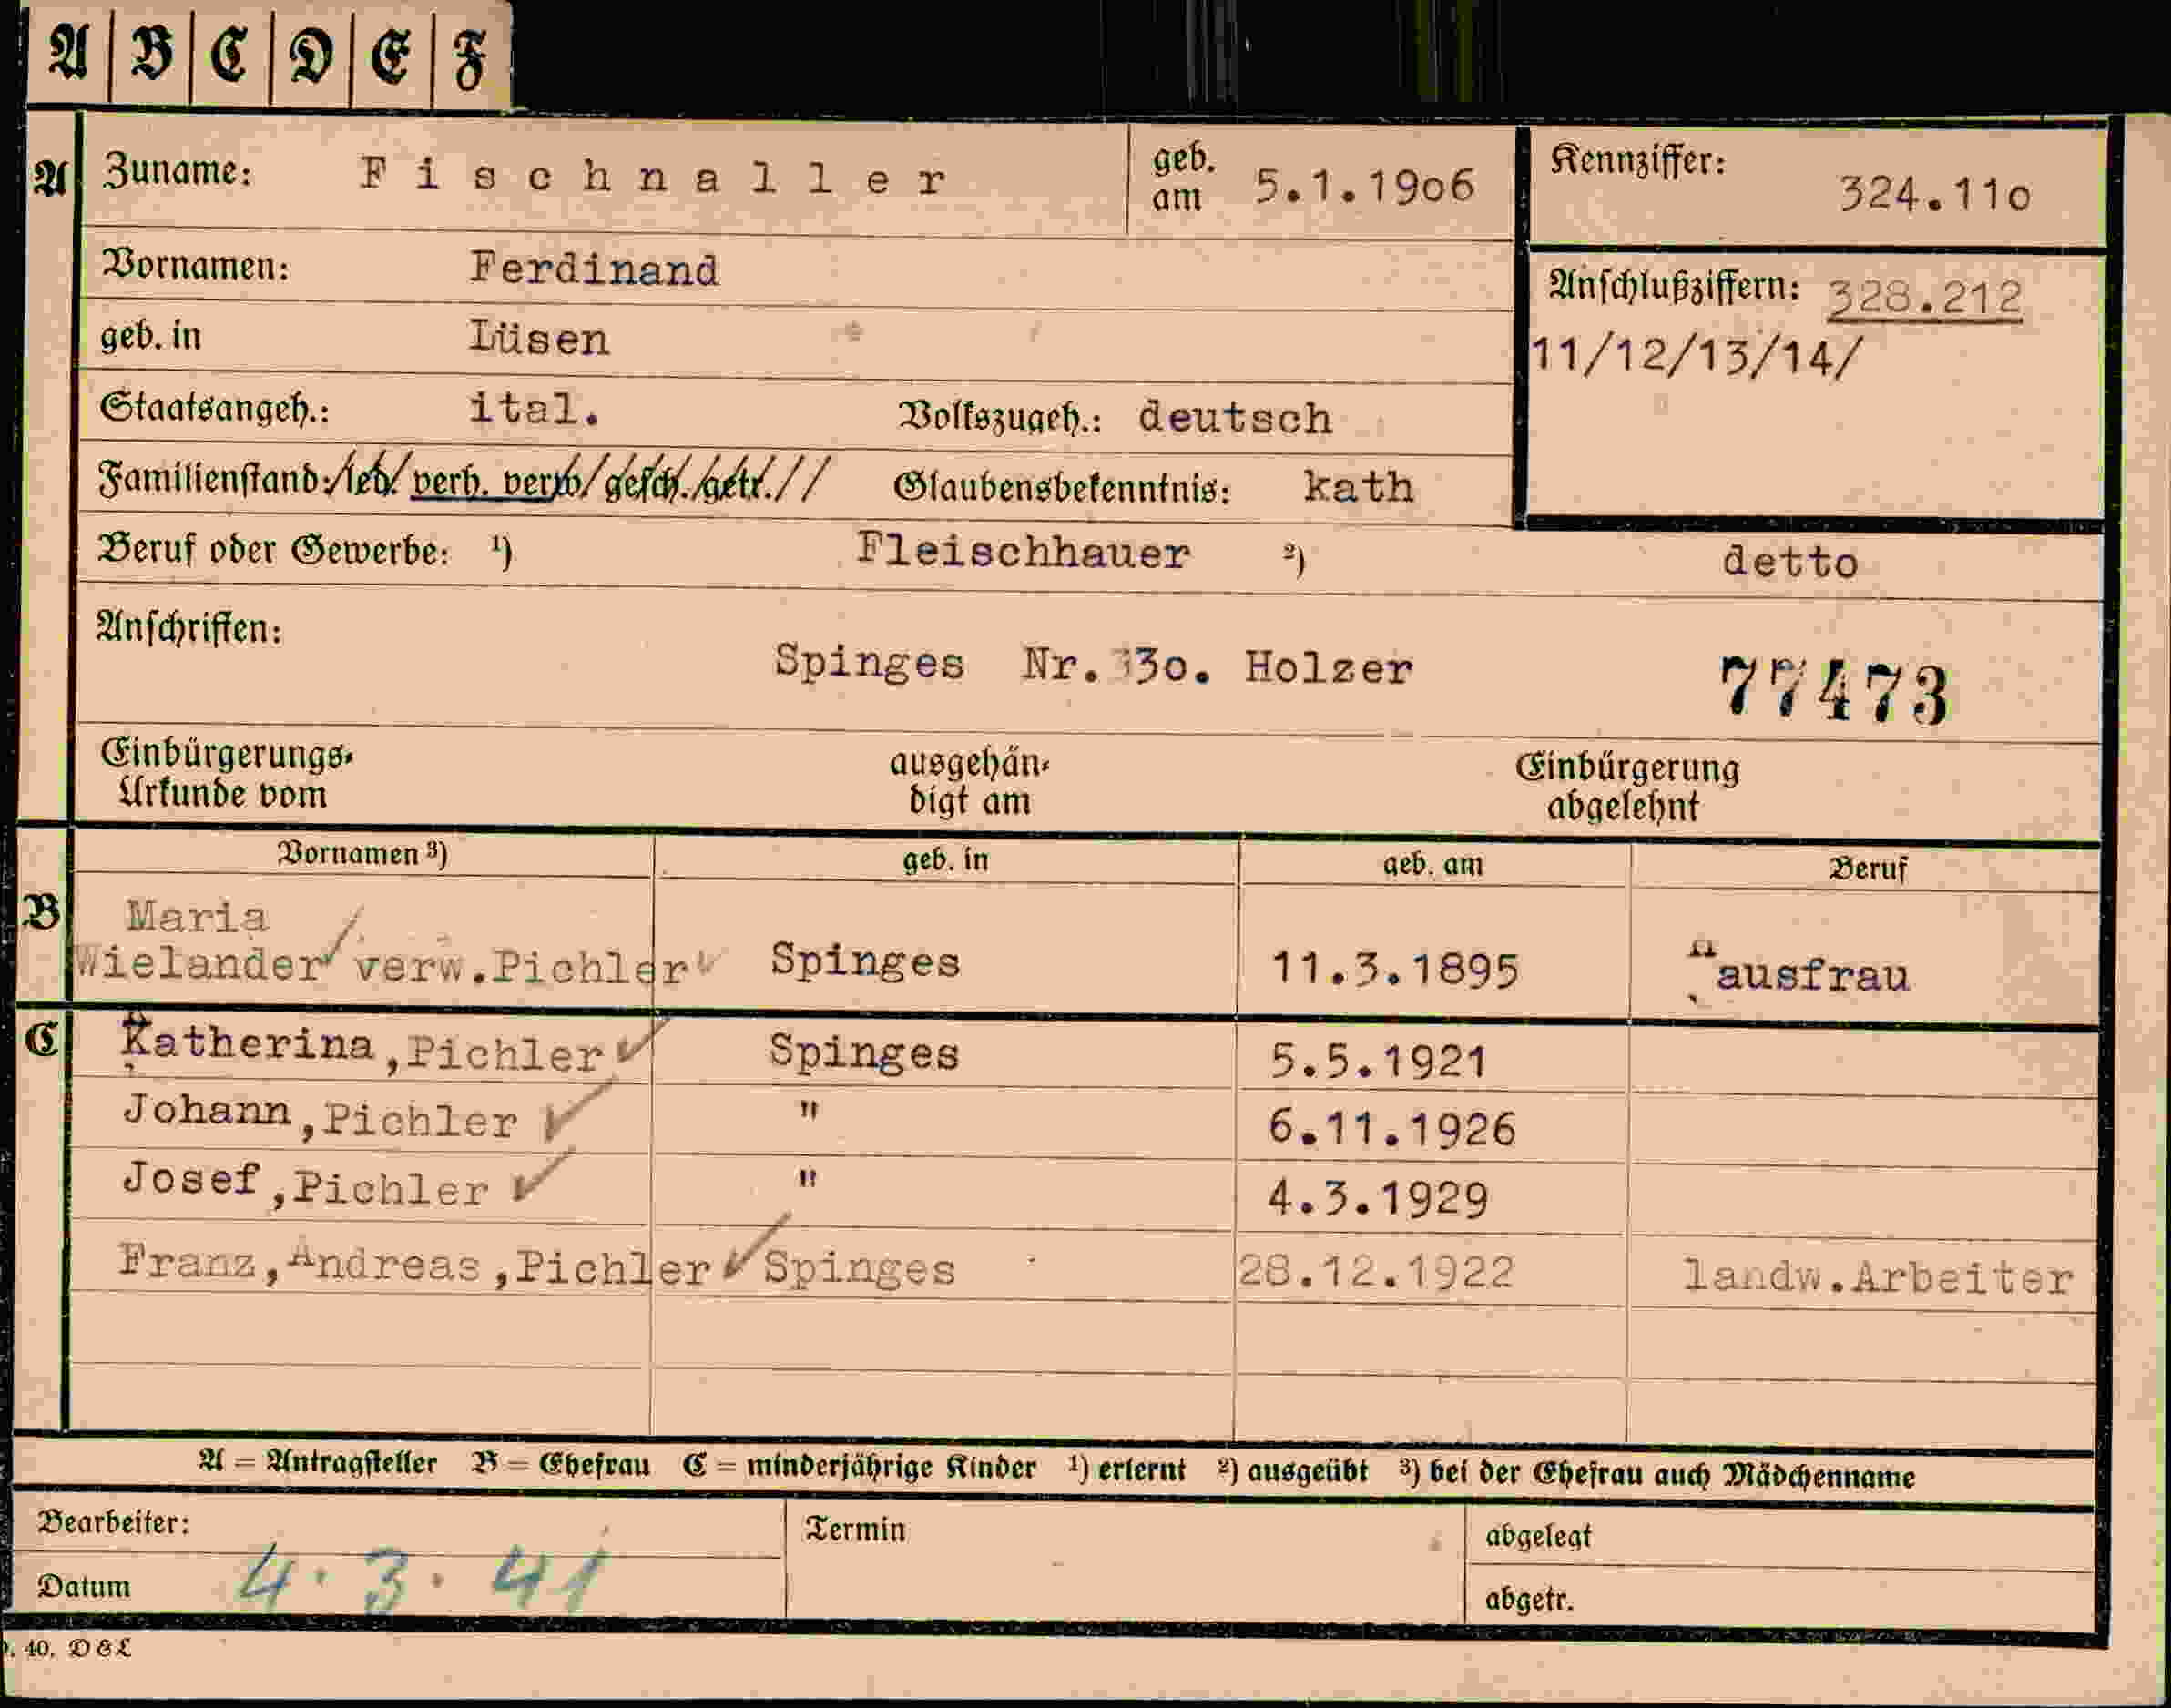 A B C D E F
A Zuname: Fischnaller geb. am 5.1.19o6 Kennziffer: 324.11o
Vornamen: Ferdinand
Anschlußziffern: 328.212
geb. in Lüsen
11/12/13/14/
Staatsangeh.: ital. Volkszugeh.: deutsch
Familienstand: led. verh. verw. gesch. getr. Glaubensbekenntnis: kath
Beruf oder Gewerbe: ¹) Fleischhauer ²) detto
Anschriften:
Spinges Nr. 3o. Holzer 77473
Einbürgerungs-Urkunde vom ausgehändigt am Einbürgerung abgelehnt
Vornamen ³) geb. in geb. am Beruf
B Maria
Wielander verw.Pichler Spinges 11.3.1895 Hausfrau
C Katherina,Pichler Spinges 5.5.1921
Johann,Pichler " 6.11.1926
Josef,Pichler " 4.3.1929
Franz,Andreas,Pichler Spinges 28.12.1922 landw.Arbeiter
A = Antragsteller B = Ehefrau C = minderjährige Kinder ¹) erlernt ²) ausgeübt ³) bei der Ehefrau auch Mädchenname
Bearbeiter: Termin abgelegt
Datum 4.3.41 abgetr.
40. D&L